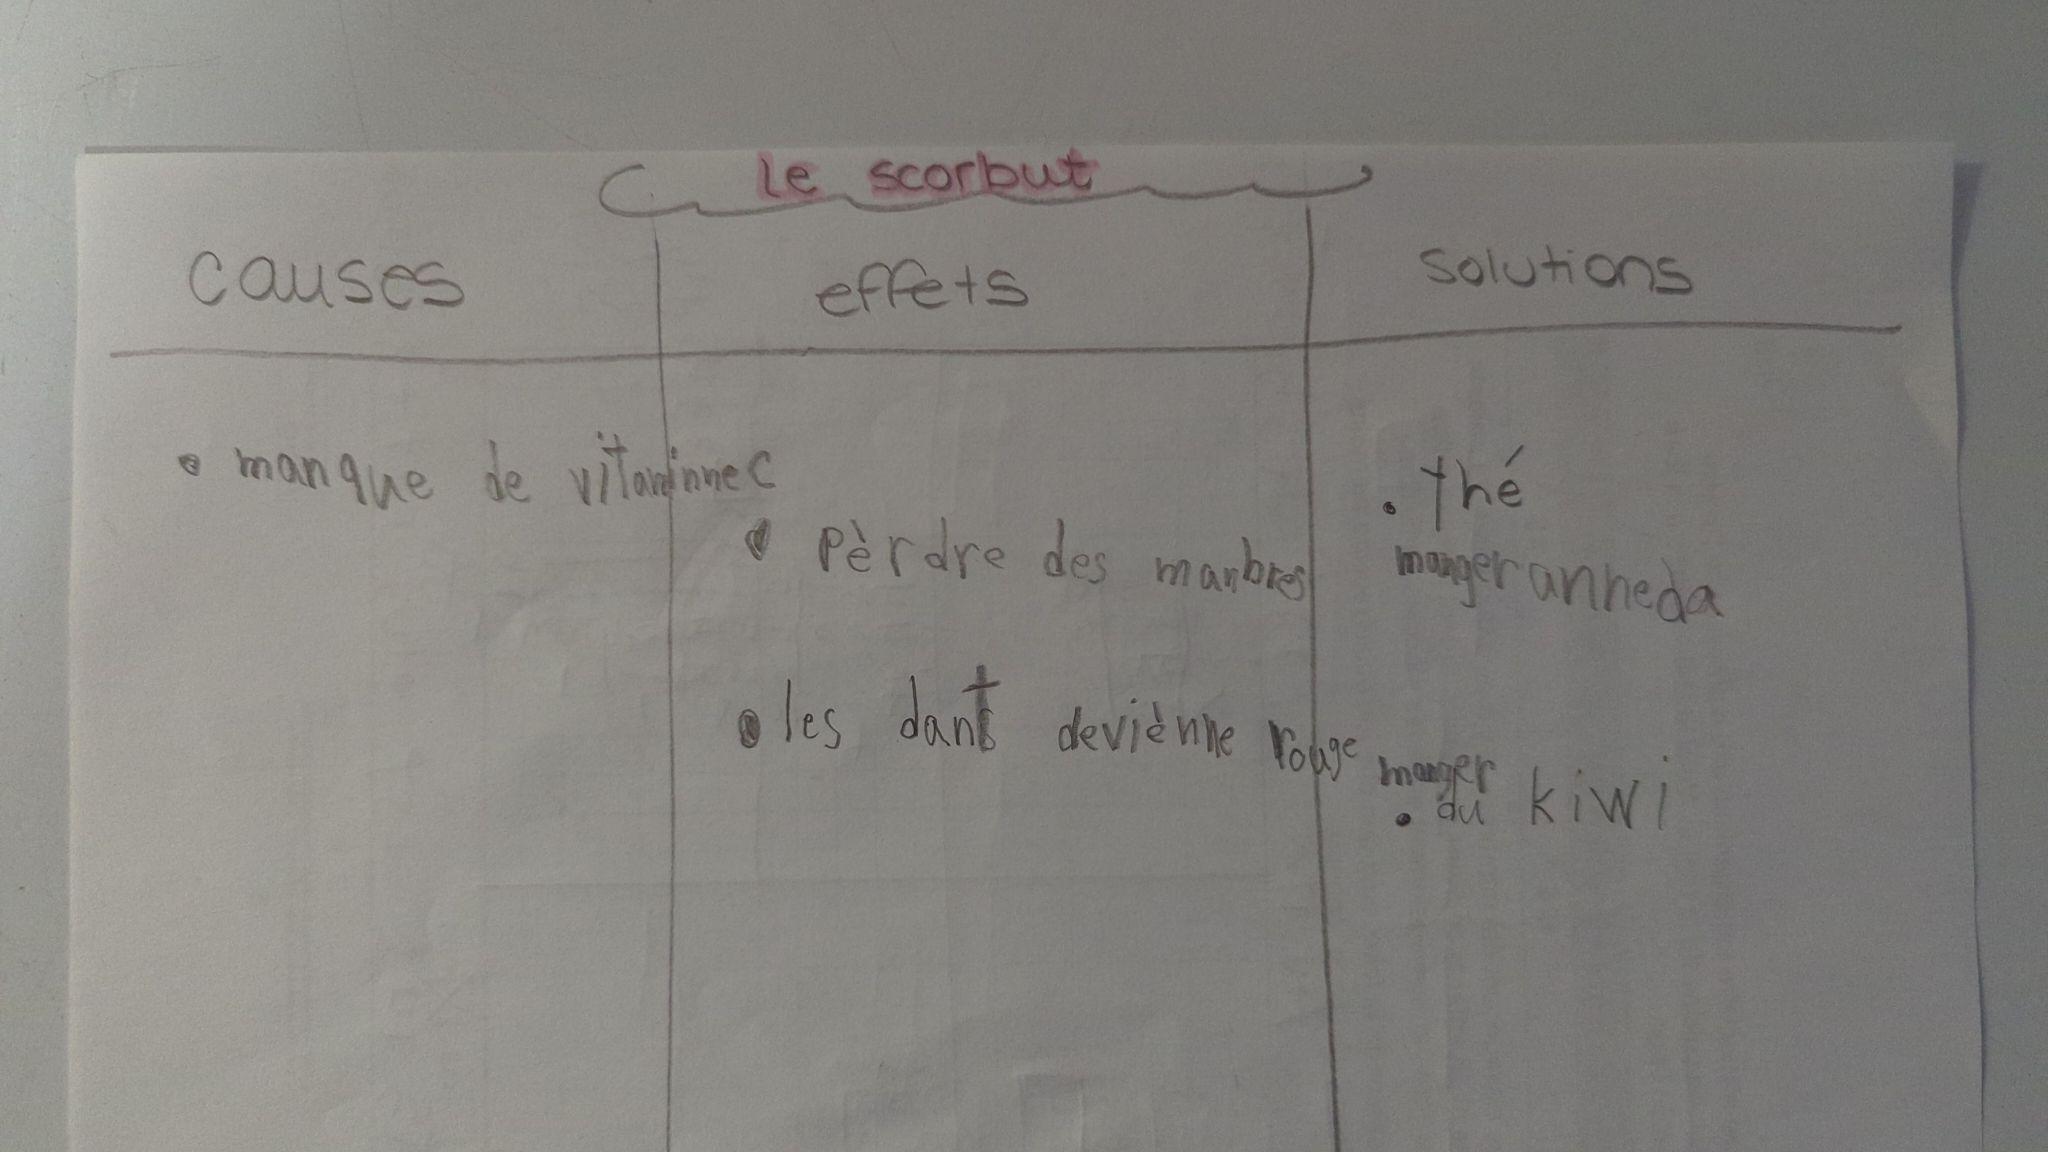 Le scorbut
causes
effets
solutions
• manque de vitaminne C
• Pèrdre des manbres
• les dants deviènne rouge
• thé
manger anneda
manger
• du kiwi